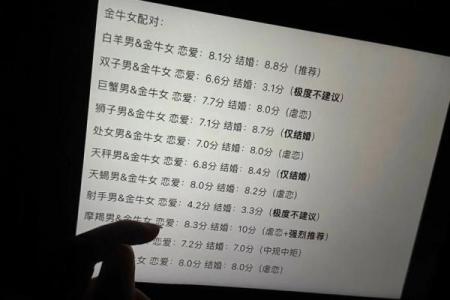 金牛女配对：
白羊男&金牛女 恋爱：8.1分 结婚：8.8分（推荐）
双子男&金牛女 恋爱：6.6分 结婚：3.1分（极度不建议）
巨蟹男&金牛女 恋爱：7.7分 结婚：8.0分（虐恋）
狮子男&金牛女 恋爱：7.1分 结婚：8.7分（仅结婚）
处女男&金牛女 恋爱：7.0分 结婚：8.0分（虐恋）
天秤男&金牛女 恋爱：6.8分 结婚：8.4分（仅结婚）
天蝎男&金牛女 恋爱：8.0分 结婚：8.2分（虐恋）
射手男&金牛女 恋爱：4.2分 结婚：3.3分（极度不建议）
摩羯男&金牛女 恋爱：8.3分 结婚：10分（虐恋+强烈推荐）
牛女 恋爱：7.2分 结婚：7.0分（中规中矩）
金牛女 恋爱：8.0分 结婚：8.0分（虐恋）